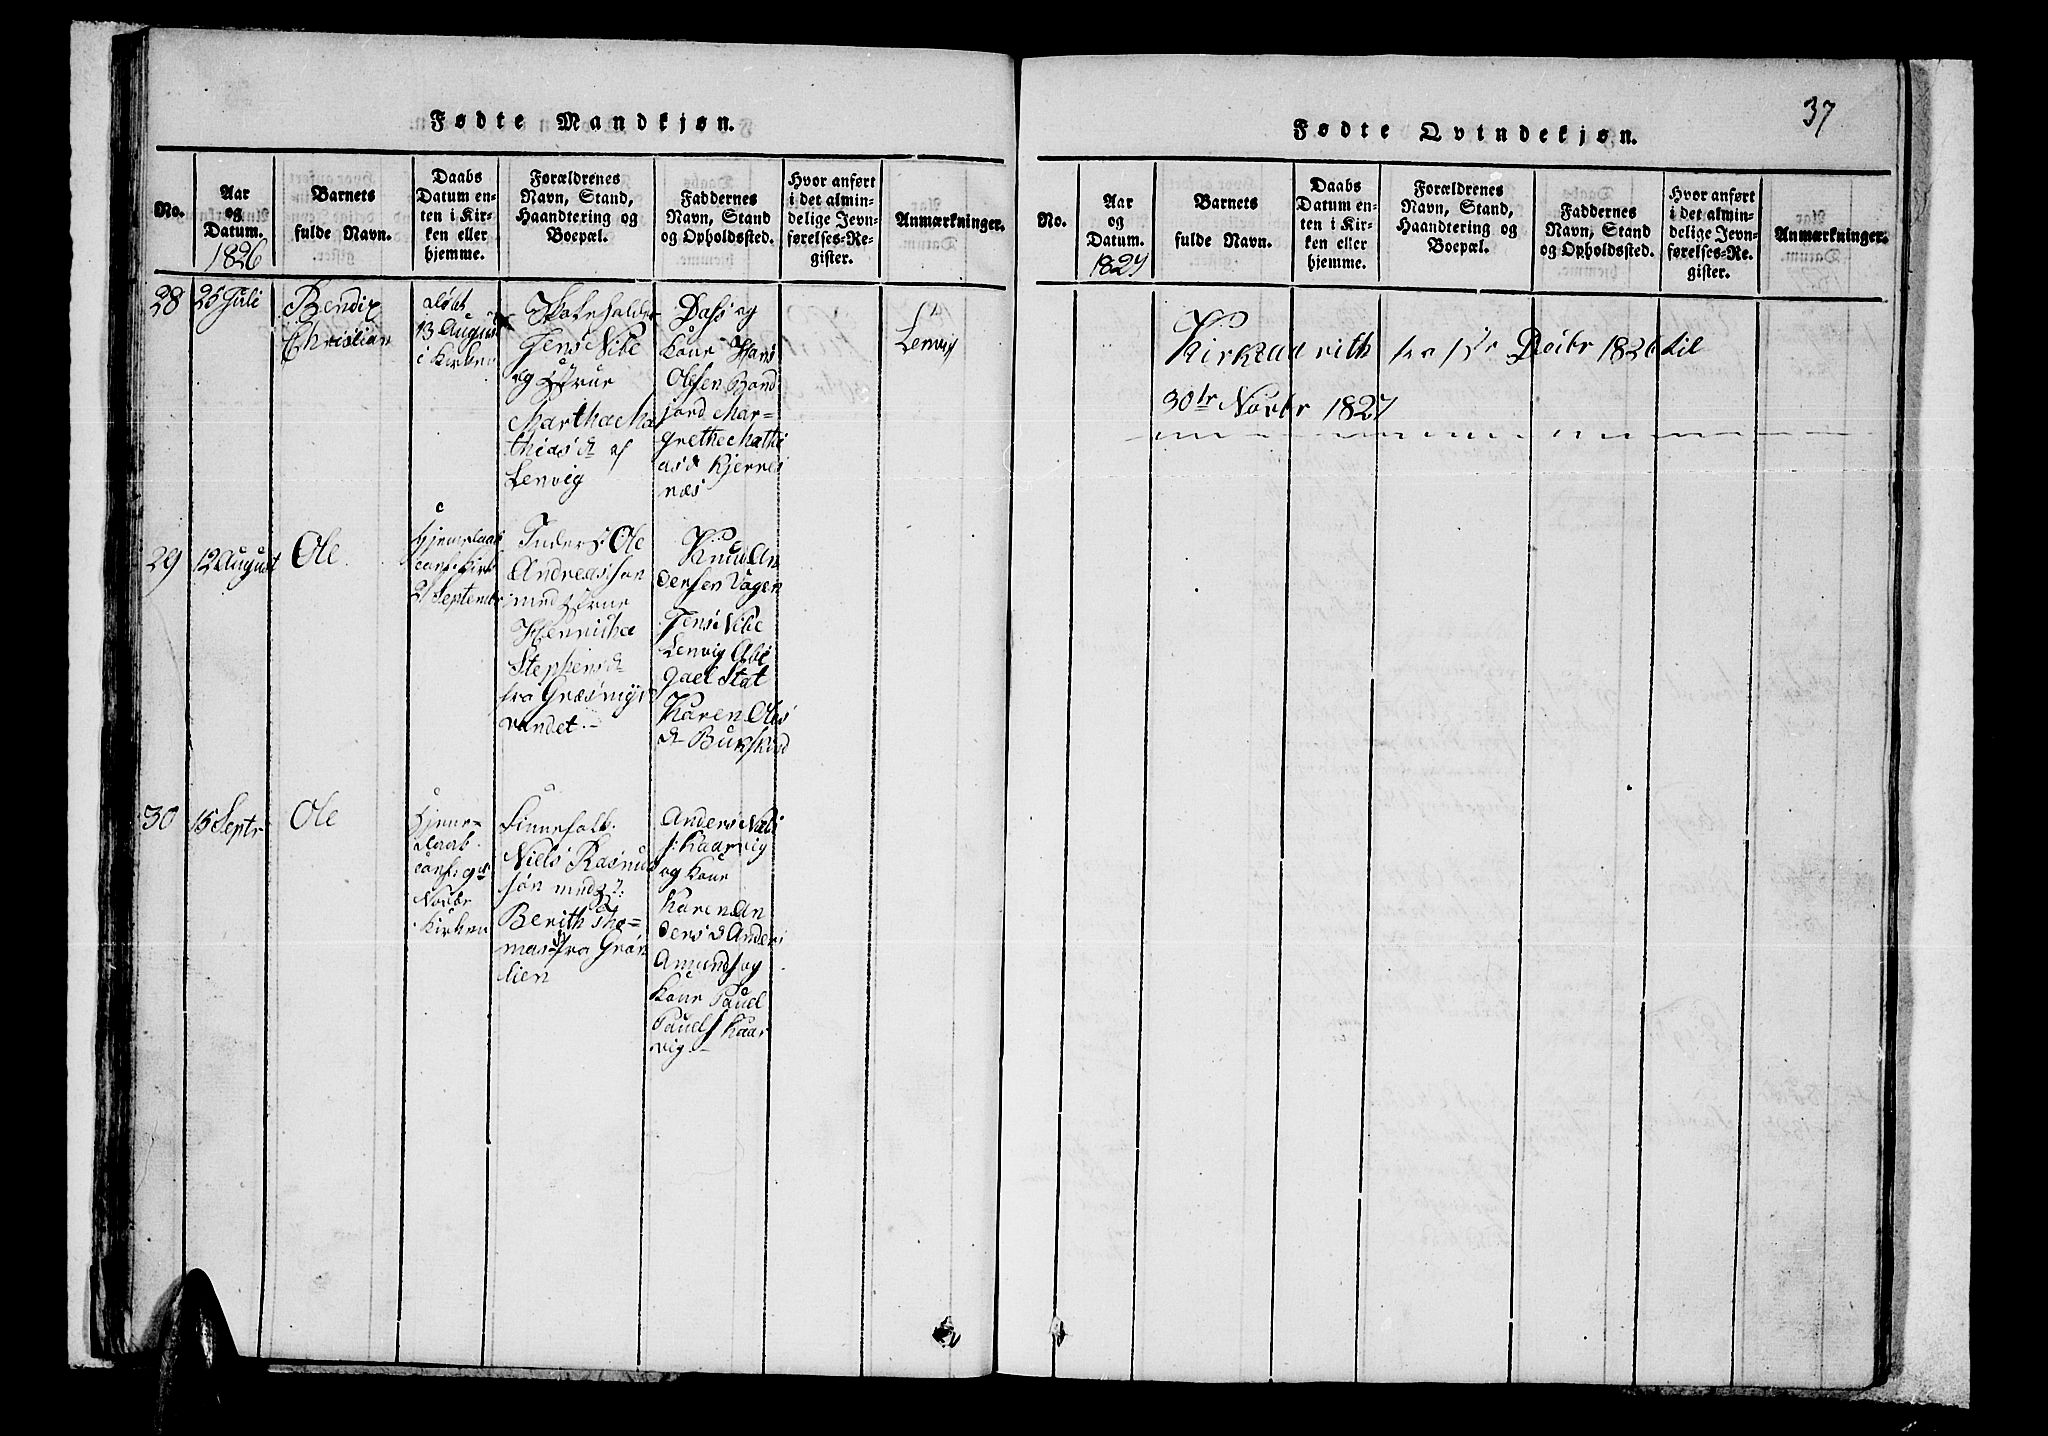 Fødte Mandkjøn.
No.
Aar
og
Datum.
1826
Barnets
fulde Navn.
Daabs
Datum en-
ten i Kir-
ken eller
hjemme.
Forældrenes
Navn, Stand,
Haandtering og
Boepæl.
Faddernes
Navn, Stand
og Opholdssted.
Hvor anført
i det almin-
delige Jevn-
førelses-Re-
gister.
Anmærkninger.
28
25 Juli
Bendix
Christian
døbt
13 August
i Kirken
Skoleholder
Jens Nibe
og Hstrue
Martha Ma
thiasd af
Lenvig
Dass og
Kone Hans
Olsen Bond
jord Mar=
grethe Mathi
asd Kjerres
næs
Lenvig
29
12 August
Ole
Hjemedaab
conf. i Kirk
21 Septembr
Inders Ole
Andreassøn
med Hstrue
Hennicha
Stephensd
fra Græsmyr
vandet.-
Knud An
dersen Vogen
Jens Nibe
Lenvig Abi
gael Stat
Karen Oles
d
30
15 Septr
Ole
Hjeme=
daab
conf:
Novbr
Kirken
Finnefolk.
Niels Rasmus
søn med H:
Berith Tho=
masd fra Grøn
lien
Anders
Kaarvig
og Kone
Karen An
dersd Anders
Amunds og
Kone Paul
Pauls Kaar
vig.-
37
Fødte Qvindekjøn.
No.
Aar
og
Datum.
1827
Barnets
fulde Navn.
Daabs
Datum en-
ten i Kir-
ken eller
hjemme.
Forældrenes
Navn, Stand,
Haandtering og
Boepæl.
Faddernes
Navn, Stand
og Opholdssted.
Hvor anført
i det almin-
delige Jevn-
førelses-Re-
gister.
Anmærkninger.
Kirkeaaret fra 1ste Decbr 1826 til
30te Novbr 1827